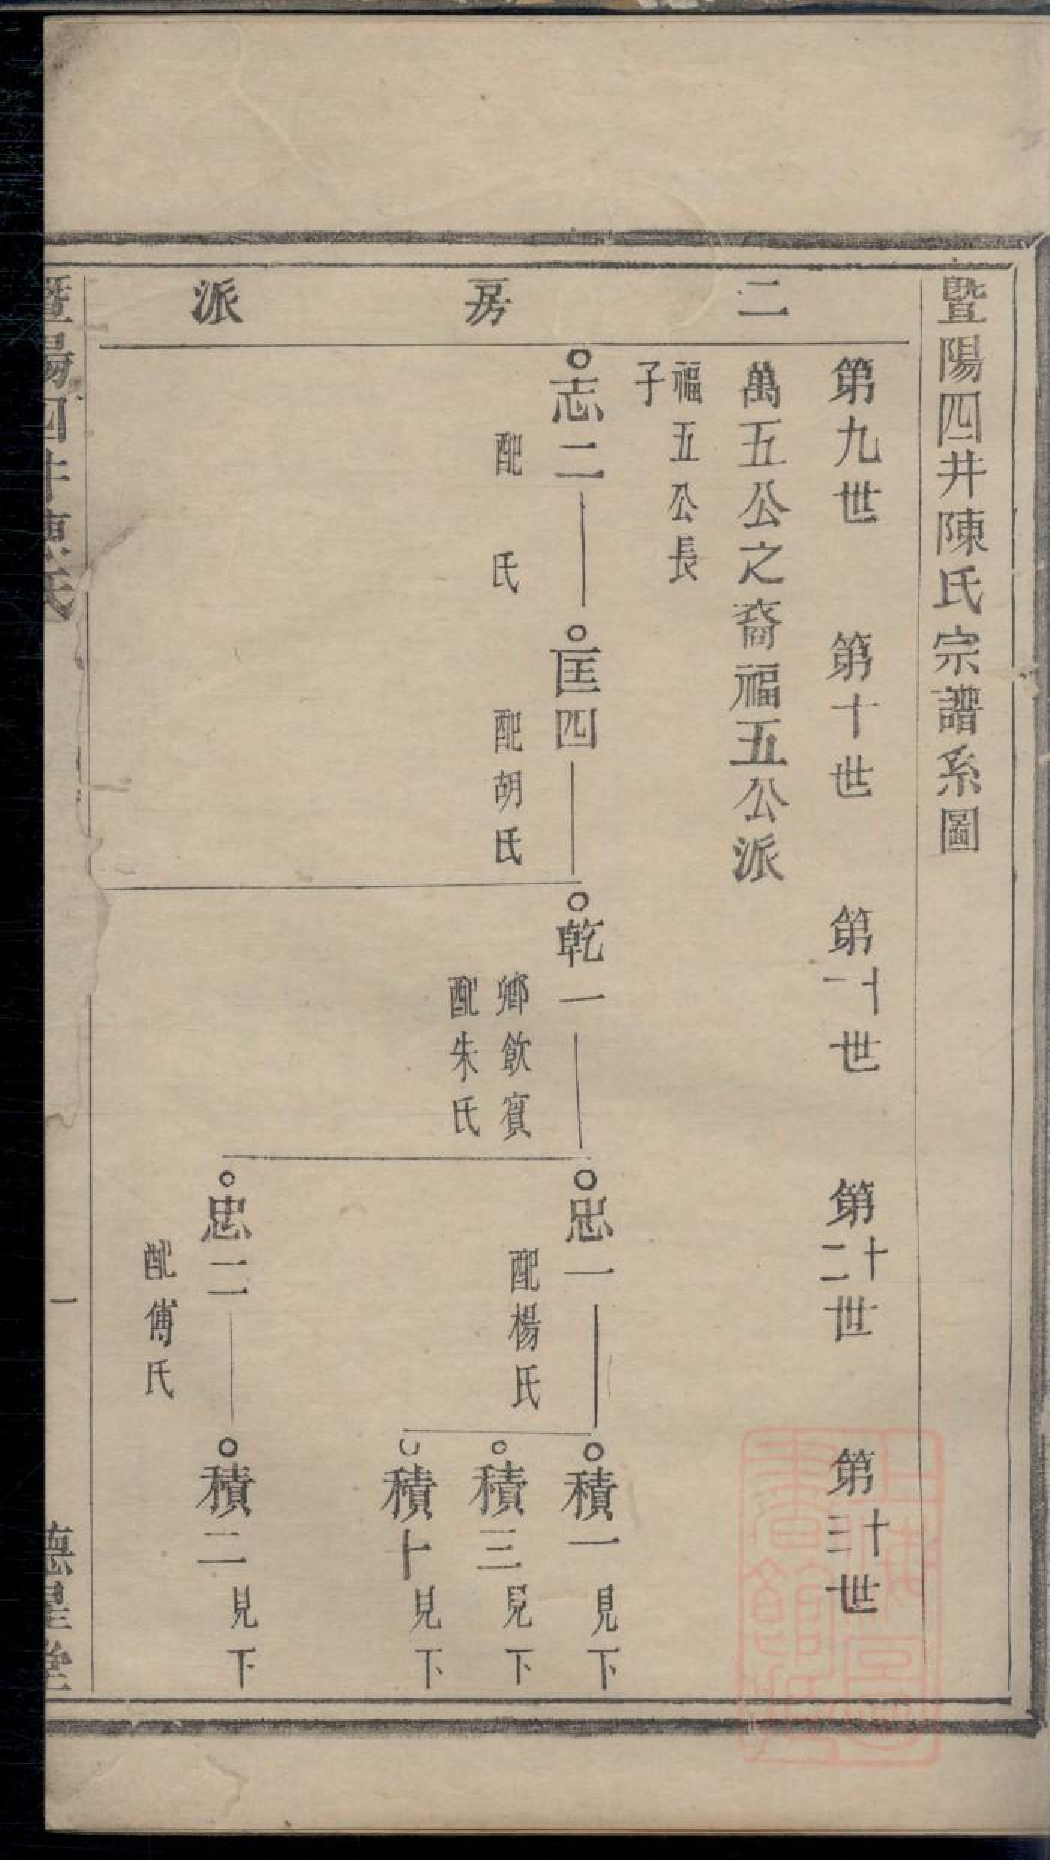 暨陽四井陳氏宗譜系圖
二房派
第九世
第十世
第十一世
第十二世
第十三世
萬五公之裔福五公派
福五公長
子
志二
配 氏
匡四
配胡氏
乾一
鄉飲賓
配朱氏
忠一
配楊氏
積一 見下
積三 見下
積十 見下
忠二
配傅氏
積二 見下
暨陽四井陳氏
一
德星堂